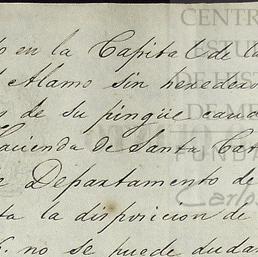 en la Capital de la
Alamo sin herederos
de su pingüe cau
Hacienda de Santa Cat
Departamento de
ta la disposicion de
no se puede dudar
CENTRO
ESTU
DE HIST
DE ME
FUNDA
Carlos